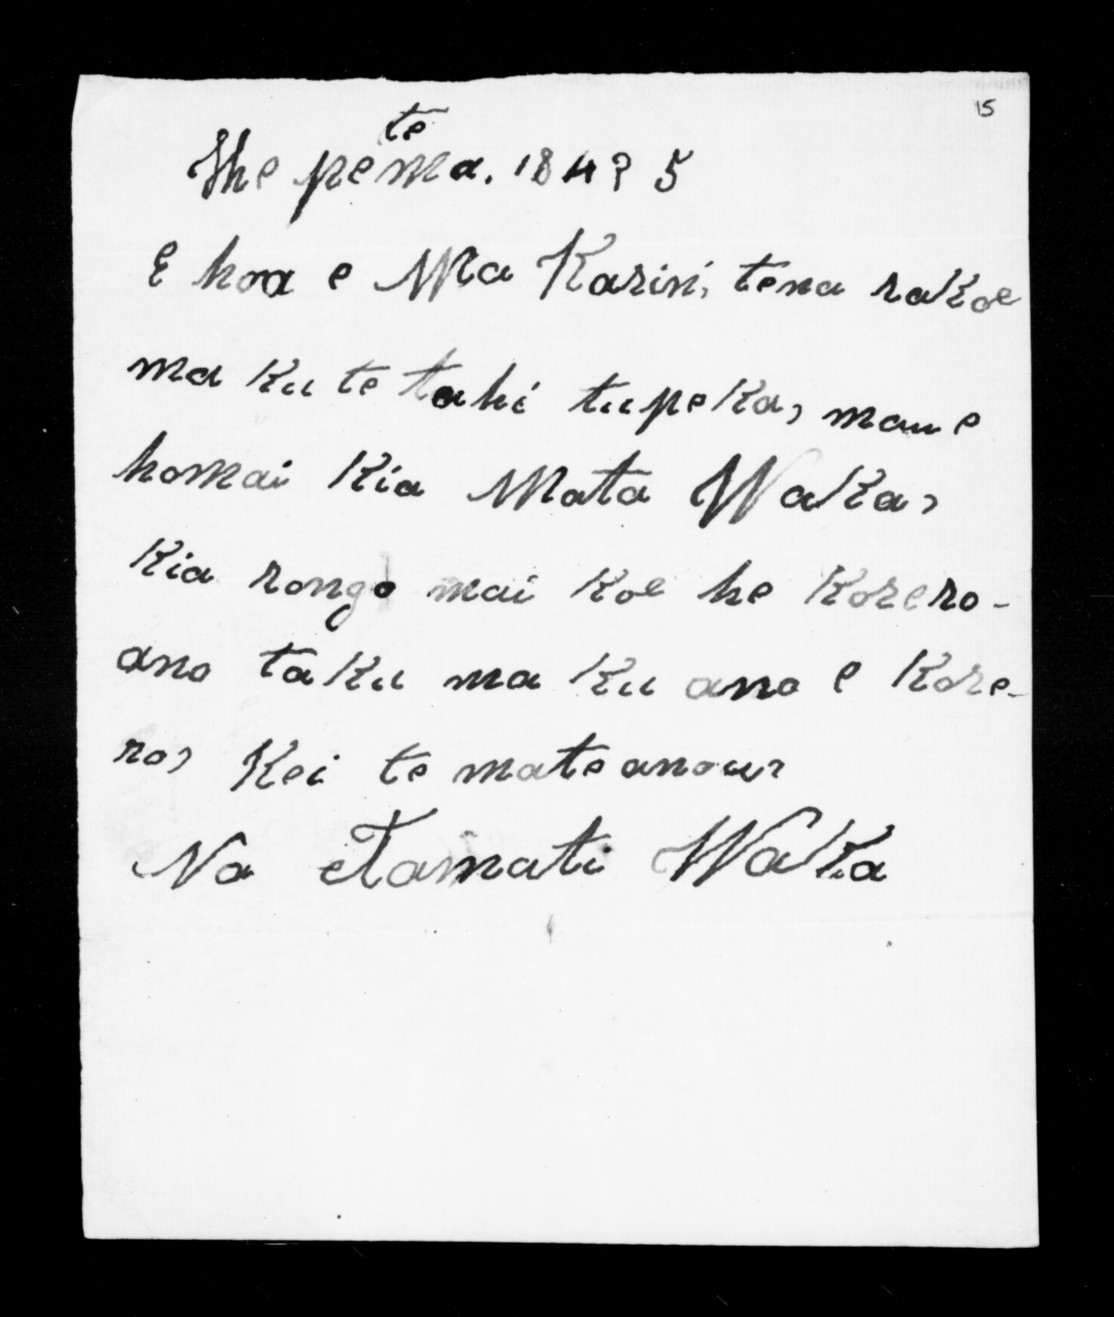 15
Hhe petema. 184? 5
E hoa e Ma Karini, tena rakoe
ma ku te tahi tupeka, mau e
homai kia Mata Waka,
Kia rongo mai koe he korero-
ano taku ma ku ano e kore-
ro, Kei te mate anou,
Na eTamati Waka